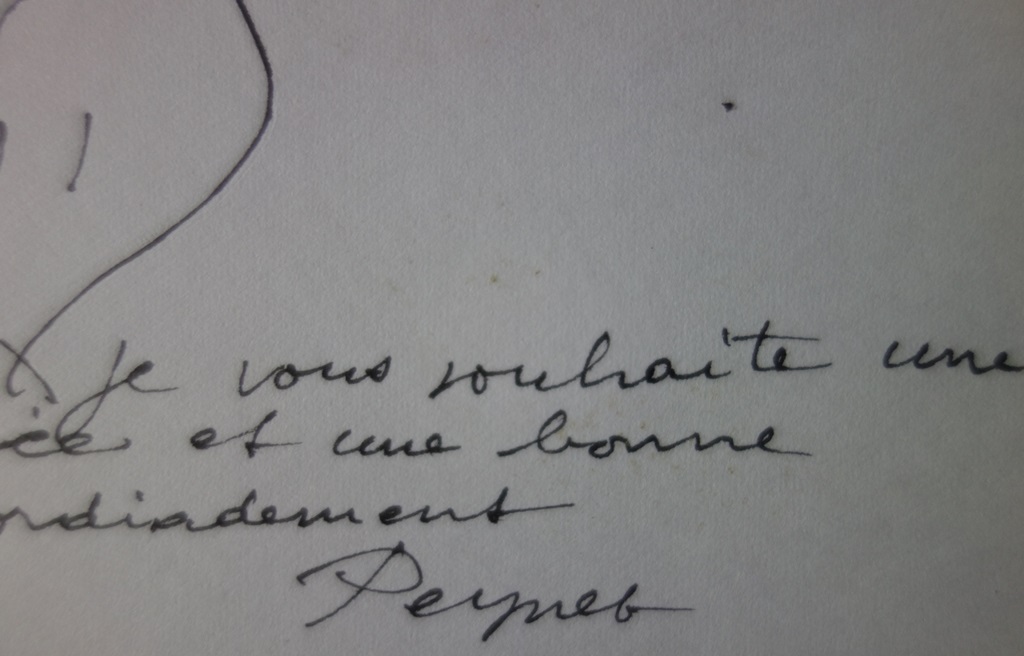 je vous souhaite une
et une bonne
ordialement
Peynet